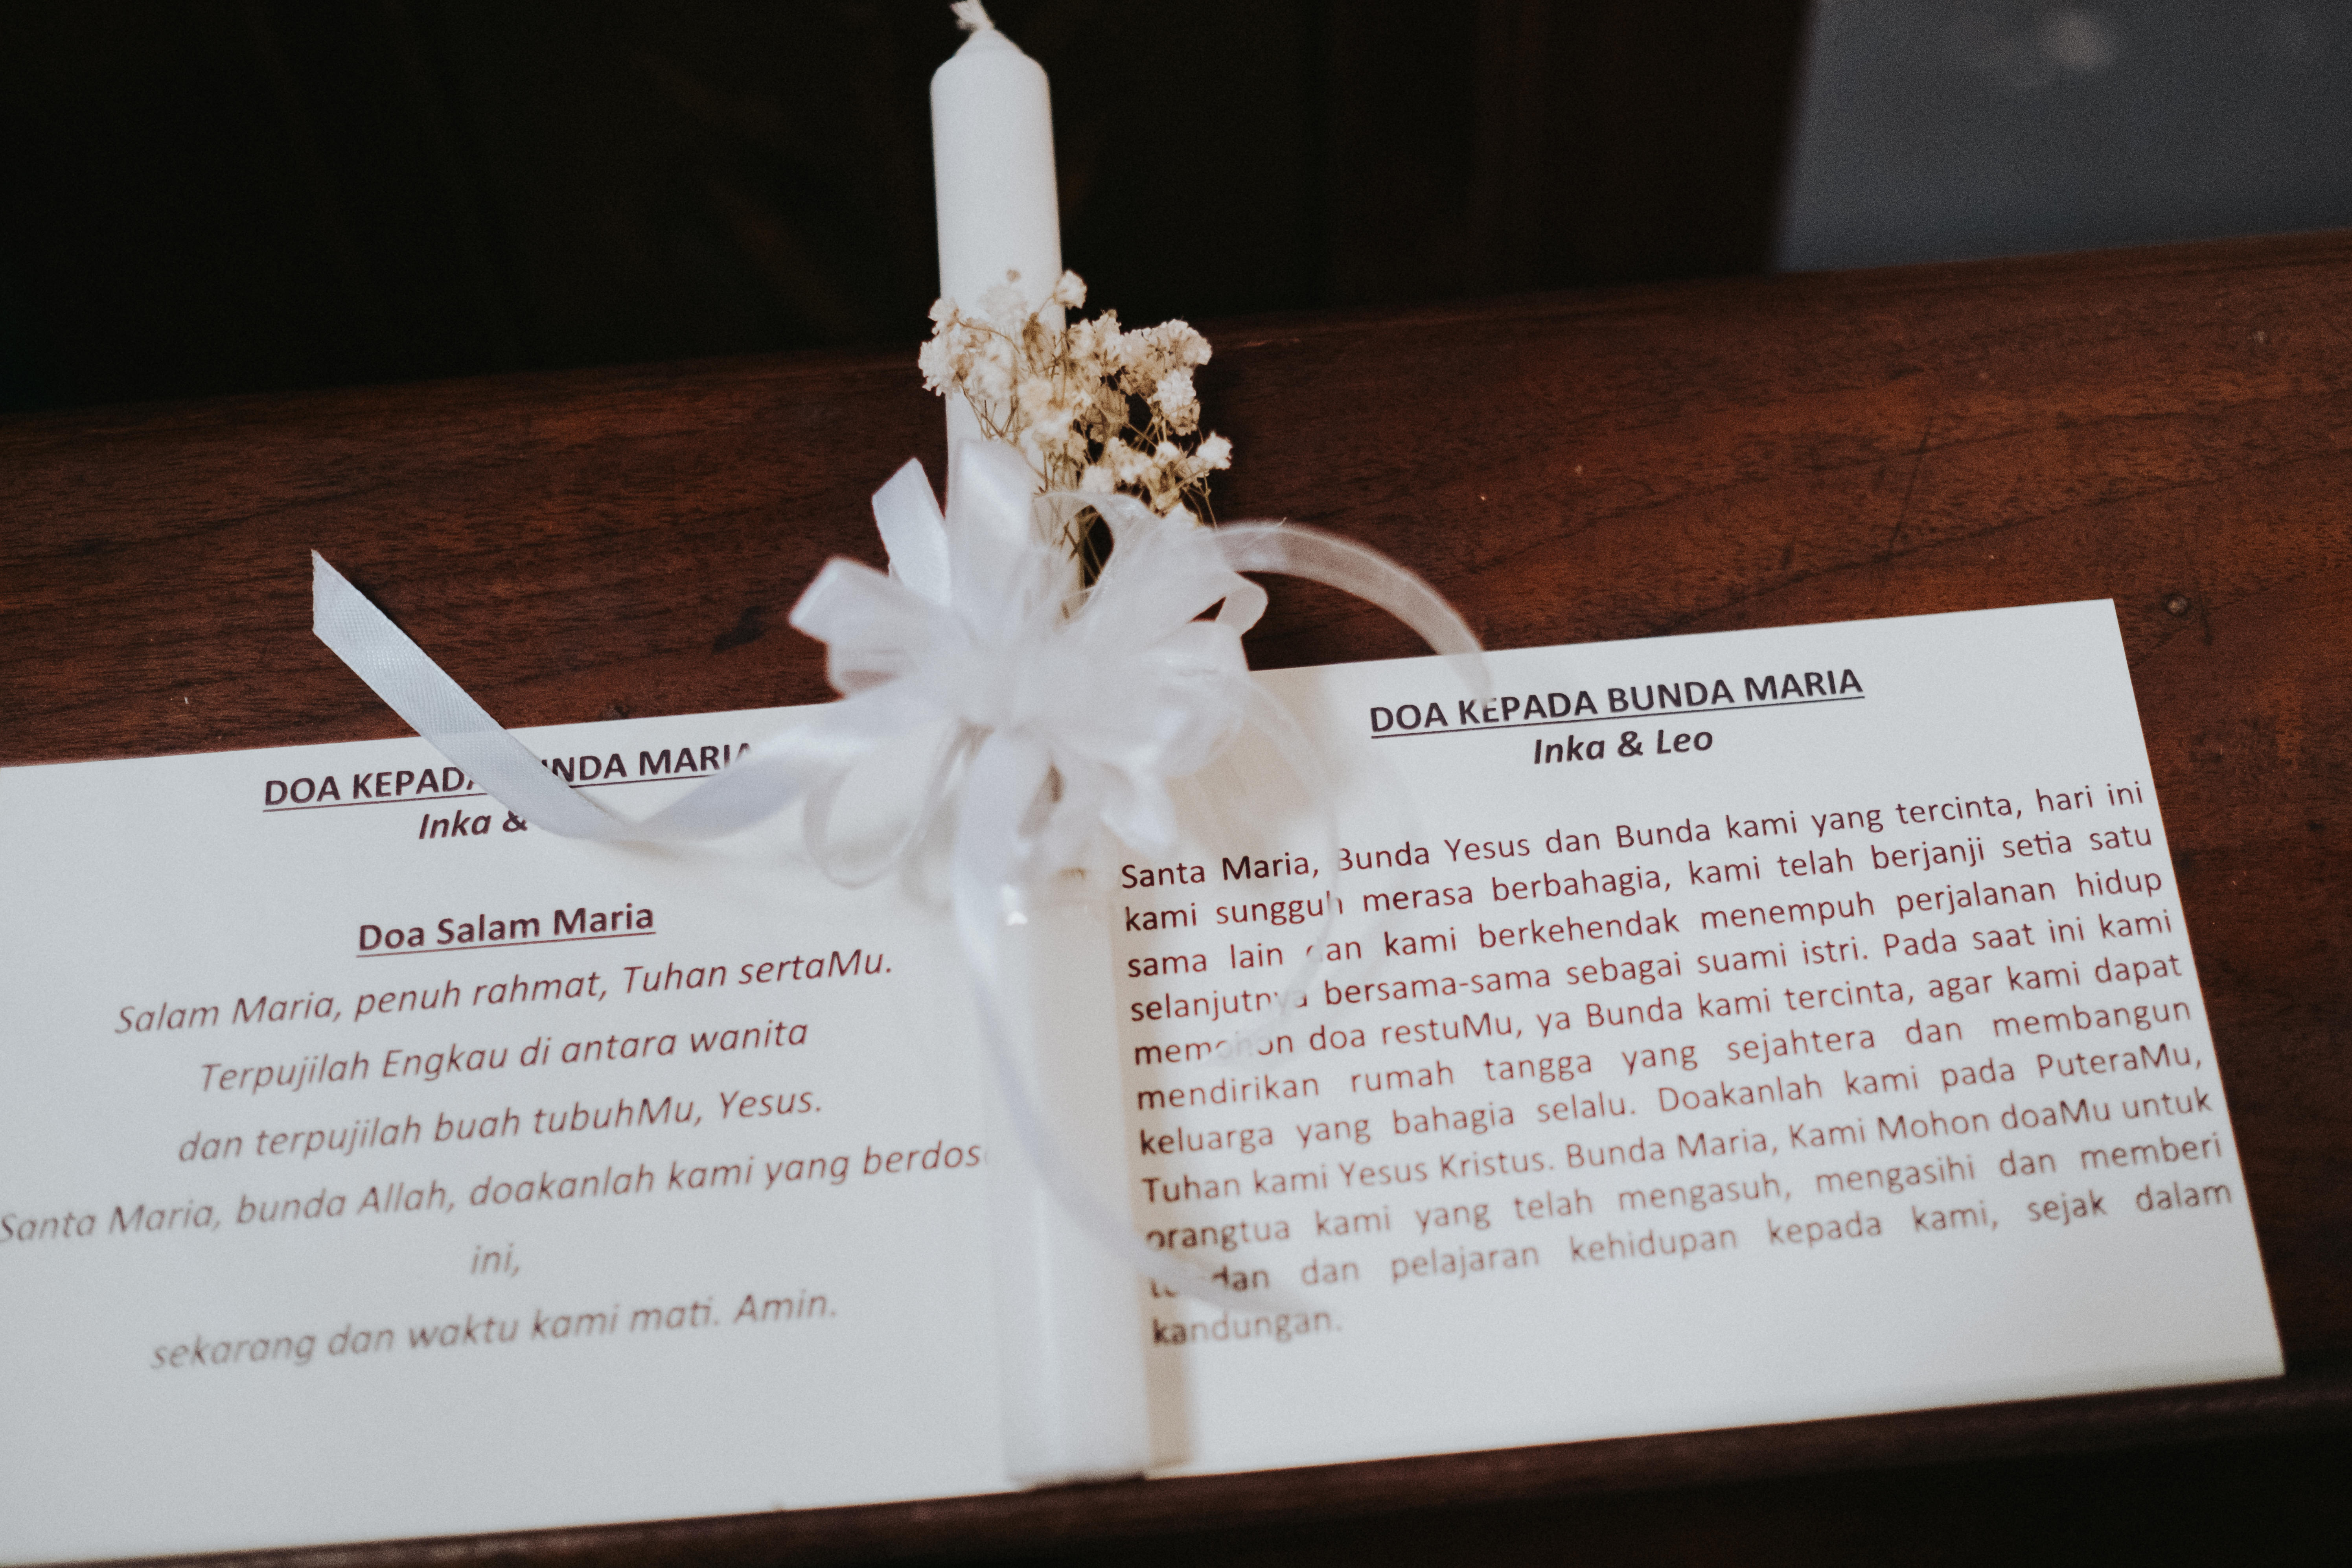 DOA KEPADA BUNDA MARIA
Inka &
Doa Salam Maria
Salam Maria, penuh rahmat, Tuhan sertaMu.
Terpujilah Engkau di antara wanita
dan terpujilah buah tubuhMu, Yesus.
Santa Maria, bunda Allah, doakanlah kami yang
ini,
sekarang dan waktu kami mati. Amin.
DOA KEPADA BUNDA MARIA
Inka & Leo
Santa Maria, Bunda Yesus dan Bunda kami yang tercinta, hari ini
kami sungguh merasa berbahagia, kami telah berjanji setia satu
sama lain dan kami berkehendak menempuh perjalanan hidup
selanjutnya bersama-sama sebagai suami istri. Pada saat ini kami
memohon doa restuMu, ya Bunda kami tercinta, agar kami dapat
mendirikan rumah tangga yang sejahtera dan membangun
keluarga yang bahagia selalu. Doakanlah kami pada PuteraMu,
Tuhan kami Yesus Kristus. Bunda Maria, Kami Mohon doaMu untuk
orangtua kami yang telah mengasuh, mengasihi dan memberi
dan pelajaran kehidupan kepada kami, sejak dalam
kandungan.